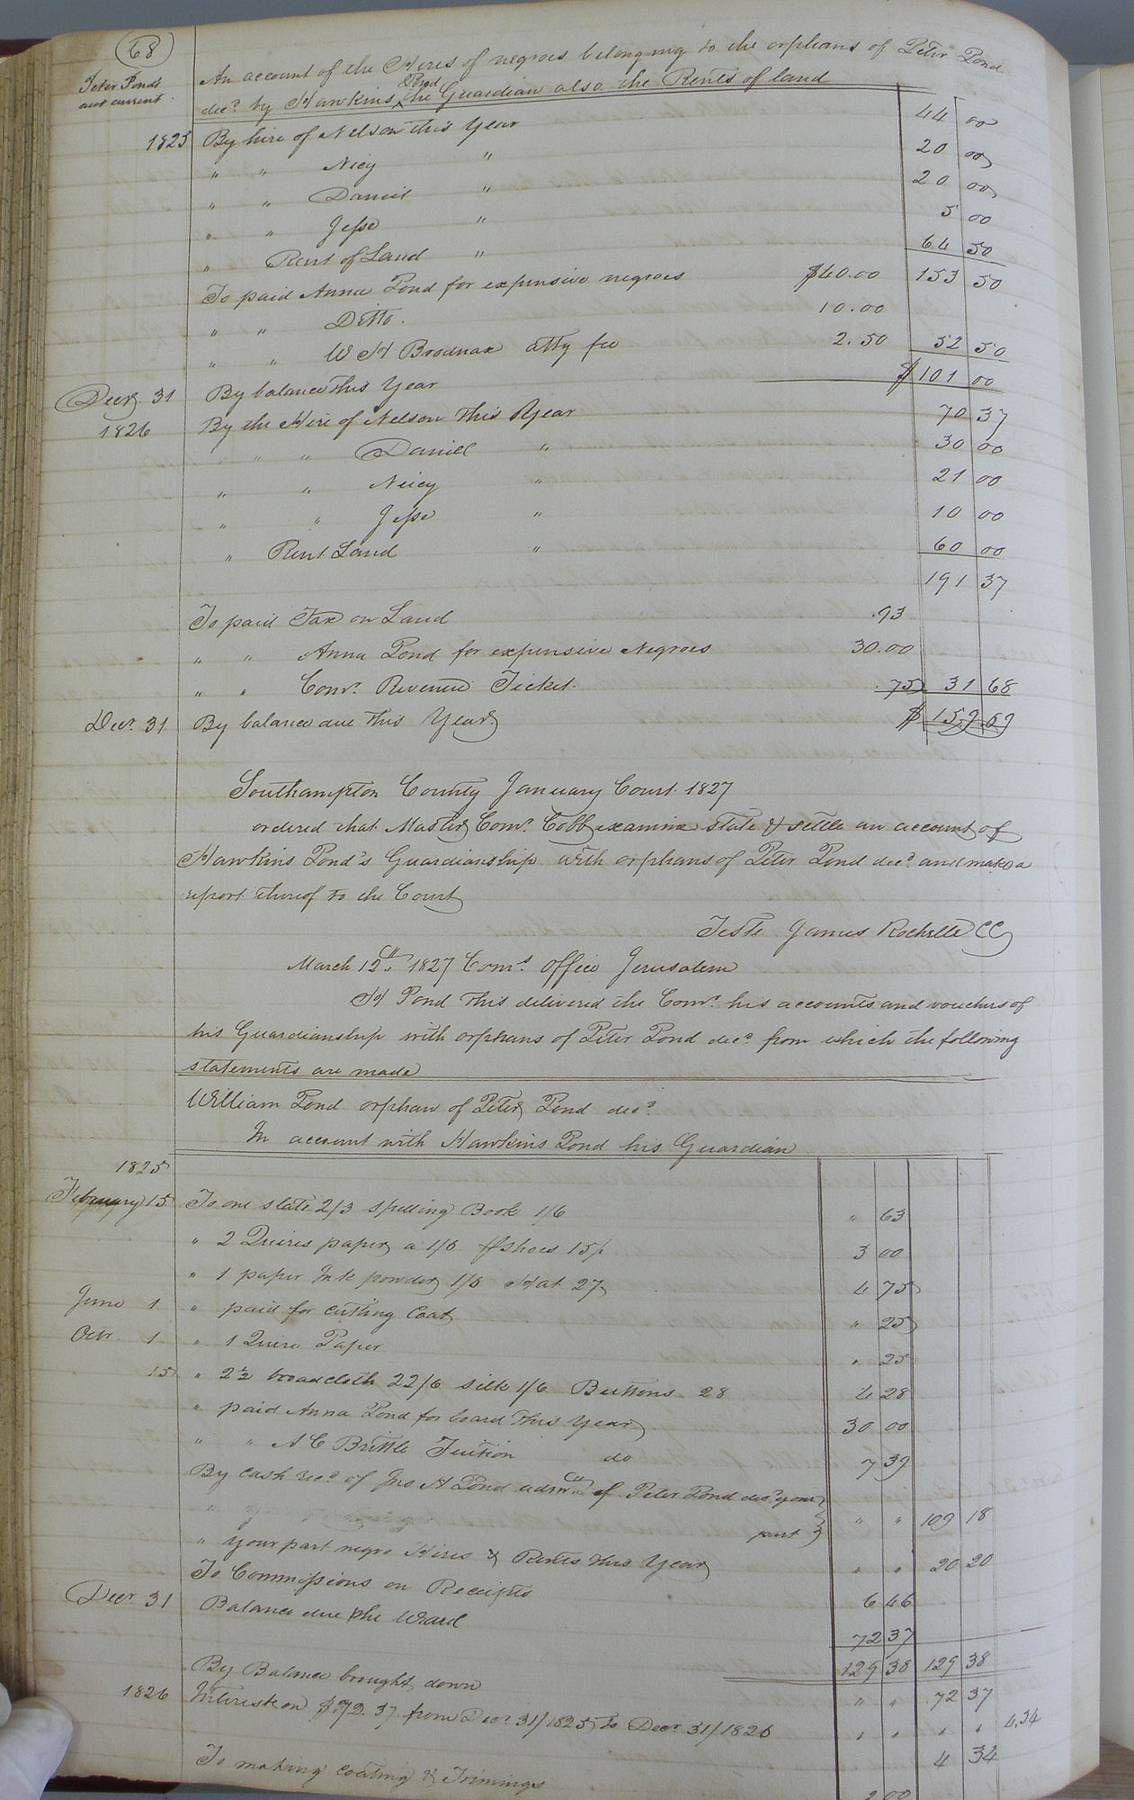 68
Peter Ponds
acct current
An account of the Hires of negroes belonging to the orphans of Peter Pond
decd by Hawkins Pond the Guardian also the Rents of land
1825 By hire of Nelson this Year 44 00
" " Nicy " 20 00
" " Daniel " 20 00
" " Jesse " 5 00
" Rent of Land " 64 50
153 50
To paid Anna Pond for expensive negroes $40.00
" " Ditto. 10.00
" " W H Brodnax atty fee 2.50 52 50
Decr 31 By balance this Year $101 00
1826 By the Hire of Nelson this Year 70 37
" " Daniel " 30 00
" " Nicey " 21 00
" " Jesse " 10 00
" Rent Land " 60 00
191 37
To paid Tax on Land .93
" " Anna Pond for expensive Negroes 30.00
" " Comr. Revenue Ticket. .75 31 68
Decr. 31 By balance due this Year $159.69
Southampton County January Court 1827
ordered that Master Comr. Cobb examine state & settle an account of
Hawkins Pond's Guardianship with orphans of Peter Pond decd and make a
report thereof to the Court
Teste James Rochelle CC
March 12th 1827 Comrs. Office Jerusalem
H Pond this delivered the Comr. his accounts and vouchers of
his Guardianship with orphans of Peter Pond decd from which the following
statements are made
William Pond orphan of Peter Pond decd
In account with Hawkins Pond his Guardian
1825
February 15 To one slate 2/3 spelling Book 1/6 " 63
" 2 Quires paper a 1/6 pr shoes 15/ 3 00
" 1 paper Ink powder 1/6 Hat 27/ 4 75
June 1 " paid for cutting Coat " 25
Octr. 1 " 1 Quire Paper " 25
15 " 2½ broadcloth 22/6 silk 1/6 Buttons 28 4 28
" paid Anna Pond for board this Year 30 00
" " A C Brittle Tuition do 7 39
By cash recd of Jno A Pond admr of Peter Pond decd your
part " " 109 18
" your part negro Hires & Rents this Year " " 20 20
To Commissions on Receipts 6 46
Decr 31 Balance due the Ward 72 37
129 38 129 38
By Balance brought down " " 72 37
1826 Interest on $72.37 from Decr 31/1825 to Decr 31/1826 " " " " 4.34
4 34
To making coating & Trimings 2 00